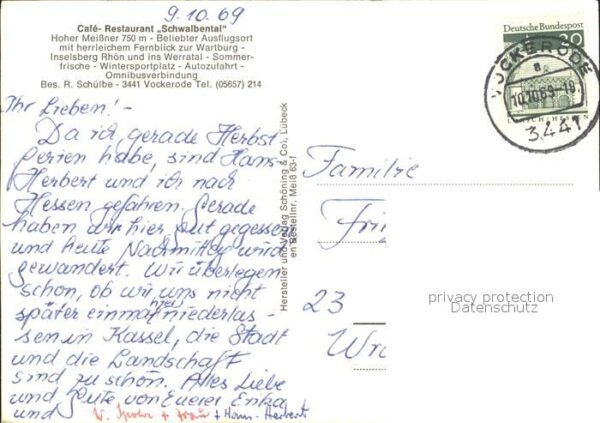 9.10.69
Café- Restaurant „Schwalbental"
Hoher Meißner 750 m - Beliebter Ausflugsort
mit herrleichem Fernblick zur Wartburg -
Inselsberg Rhön und ins Werratal - Sommer-
frische - Wintersportplatz - Autozufahrt -
Omnibusverbindung
Bes. R. Schülbe - 3441 Vockerode Tel. (05657) 214
Ihr Lieben! -
Da ich gerade Herbst-
ferien habe, sind Hans-
Herbert und ich nach
Hessen gefahren. Gerade
haben wir hier gut gegessen
und heute Nachmittag wird
gewandert. Wir überlegen
schon, ob wir uns nicht
später einmal hier niederlas-
sen in Kassel, die Stadt
und die Landschaft
sind so schön. Alles Liebe
und Gute von Eurer Erika
und
+ Frau + Hans-Herbert
Hersteller und Verlag Schöning & Co, Lübeck
en Bestellnr. Meiß 63-f
Deutsche Bundespost
20
VOCKERODE
a
10.10.69-19
3441
LORSCH/HESSEN
Familie
23
privacy protection
Datenschutz